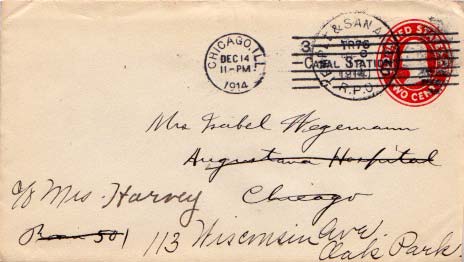 CHICAGO, ILL.
DEC 14
11-PM
1914
CANAL STATION
R.P.O.
UNITED STATES
TWO CENTS
Mrs Isabel Wegemann
Augustana Hospital
Chicago
c/o Mrs. Harvey
Room 501
113 Wisconsin Ave.
Oak Park.